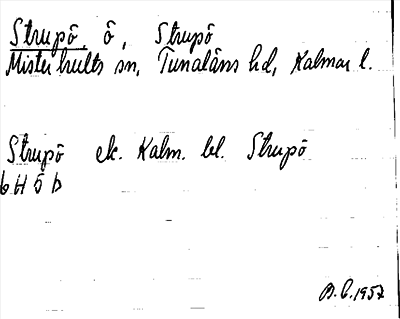 Strupö, ö, Strupö
Misterhults sn, Tunaläns hd, Kalmar l.
Strupö ek. Kalm. bl. Strupö
6H5b
B.C. 1957